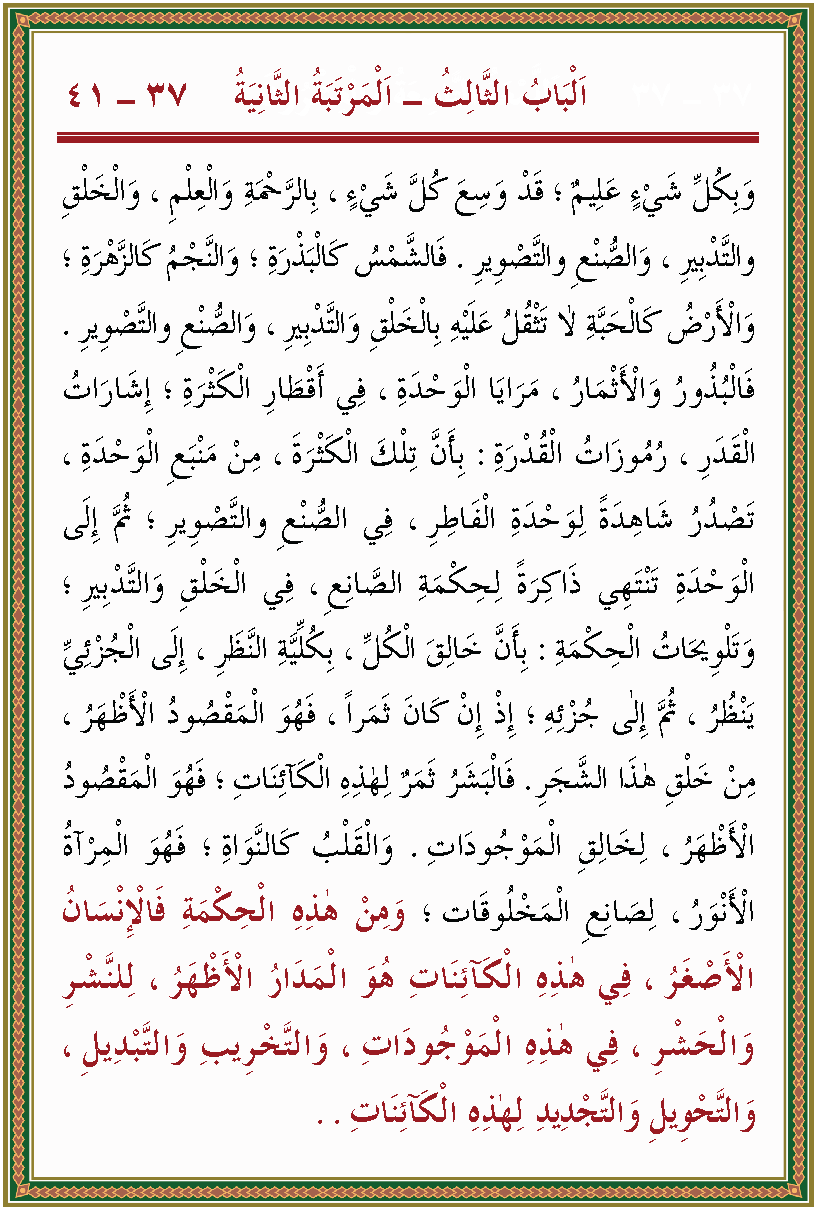 اَلْبَابُ الثَّالِثُ – اَلْمَرْتَبَةُ الثَّانِيَةُ ٣٧ – ٤١
وَبِكُلِّ شَيْءٍ عَلِيمٌ ؛ قَدْ وَسِعَ كُلَّ شَيْءٍ ، بِالرَّحْمَةِ وَالْعِلْمِ ، وَالْخَلْقِ
والتَّدْبِيرِ ، وَالصُّنْعِ والتَّصْوِيرِ . فَالشَّمْسُ كَالْبَذْرَةِ ؛ وَالنَّجْمُ كَالزَّهْرَةِ ؛
وَالْأَرْضُ كَالْحَبَّةِ لَا تَثْقُلُ عَلَيْهِ بِالْخَلْقِ وَالتَّدْبِيرِ ، وَالصُّنْعِ والتَّصْوِيرِ .
فَالْبُذُورُ وَالْأَثْمَارُ ، مَرَايَا الْوَحْدَةِ ، فِي أَقْطَارِ الْكَثْرَةِ ؛ إِشَارَاتُ
الْقَدَرِ ، رُمُوزَاتُ الْقُدْرَةِ : بِأَنَّ تِلْكَ الْكَثْرَةَ ، مِنْ مَنْبَعِ الْوَحْدَةِ ،
تَصْدُرُ شَاهِدَةً لِوَحْدَةِ الْفَاطِرِ ، فِي الصُّنْعِ والتَّصْوِيرِ ؛ ثُمَّ إِلَى
الْوَحْدَةِ تَنْتَهِي ذَاكِرَةً لِحِكْمَةِ الصَّانِعِ ، فِي الْخَلْقِ وَالتَّدْبِيرِ ؛
وَتَلْوِيحَاتُ الْحِكْمَةِ : بِأَنَّ خَالِقَ الْكُلِّ ، بِكُلِّيَّةِ النَّظَرِ ، إِلَى الْجُزْئِيِّ
يَنْظُرُ ، ثُمَّ إِلٰى جُزْئِهِ ؛ إِذْ إِنْ كَانَ ثَمَراً ، فَهُوَ الْمَقْصُودُ الْأَظْهَرُ ،
مِنْ خَلْقِ هٰذَا الشَّجَرِ . فَالْبَشَرُ ثَمَرٌ لِهٰذِهِ الْكَآئِنَاتِ ؛ فَهُوَ الْمَقْصُودُ
الْأَظْهَرُ ، لِخَالِقِ الْمَوْجُودَاتِ . وَالْقَلْبُ كَالنَّوَاةِ ؛ فَهُوَ الْمِرْآةُ
الْأَنْوَرُ ، لِصَانِعِ الْمَخْلُوقَاتِ ؛ وَمِنْ هٰذِهِ الْحِكْمَةِ فَالْإِنْسَانُ
الْأَصْغَرُ ، فِي هٰذِهِ الْكَآئِنَاتِ هُوَ الْمَدَارُ الْأَظْهَرُ ، لِلنَّشْرِ
وَالْحَشْرِ ، فِي هٰذِهِ الْمَوْجُودَاتِ ، وَالتَّخْرِيبِ وَالتَّبْدِيلِ ،
وَالتَّحْوِيلِ وَالتَّجْدِيدِ لِهٰذِهِ الْكَآئِنَاتِ . .